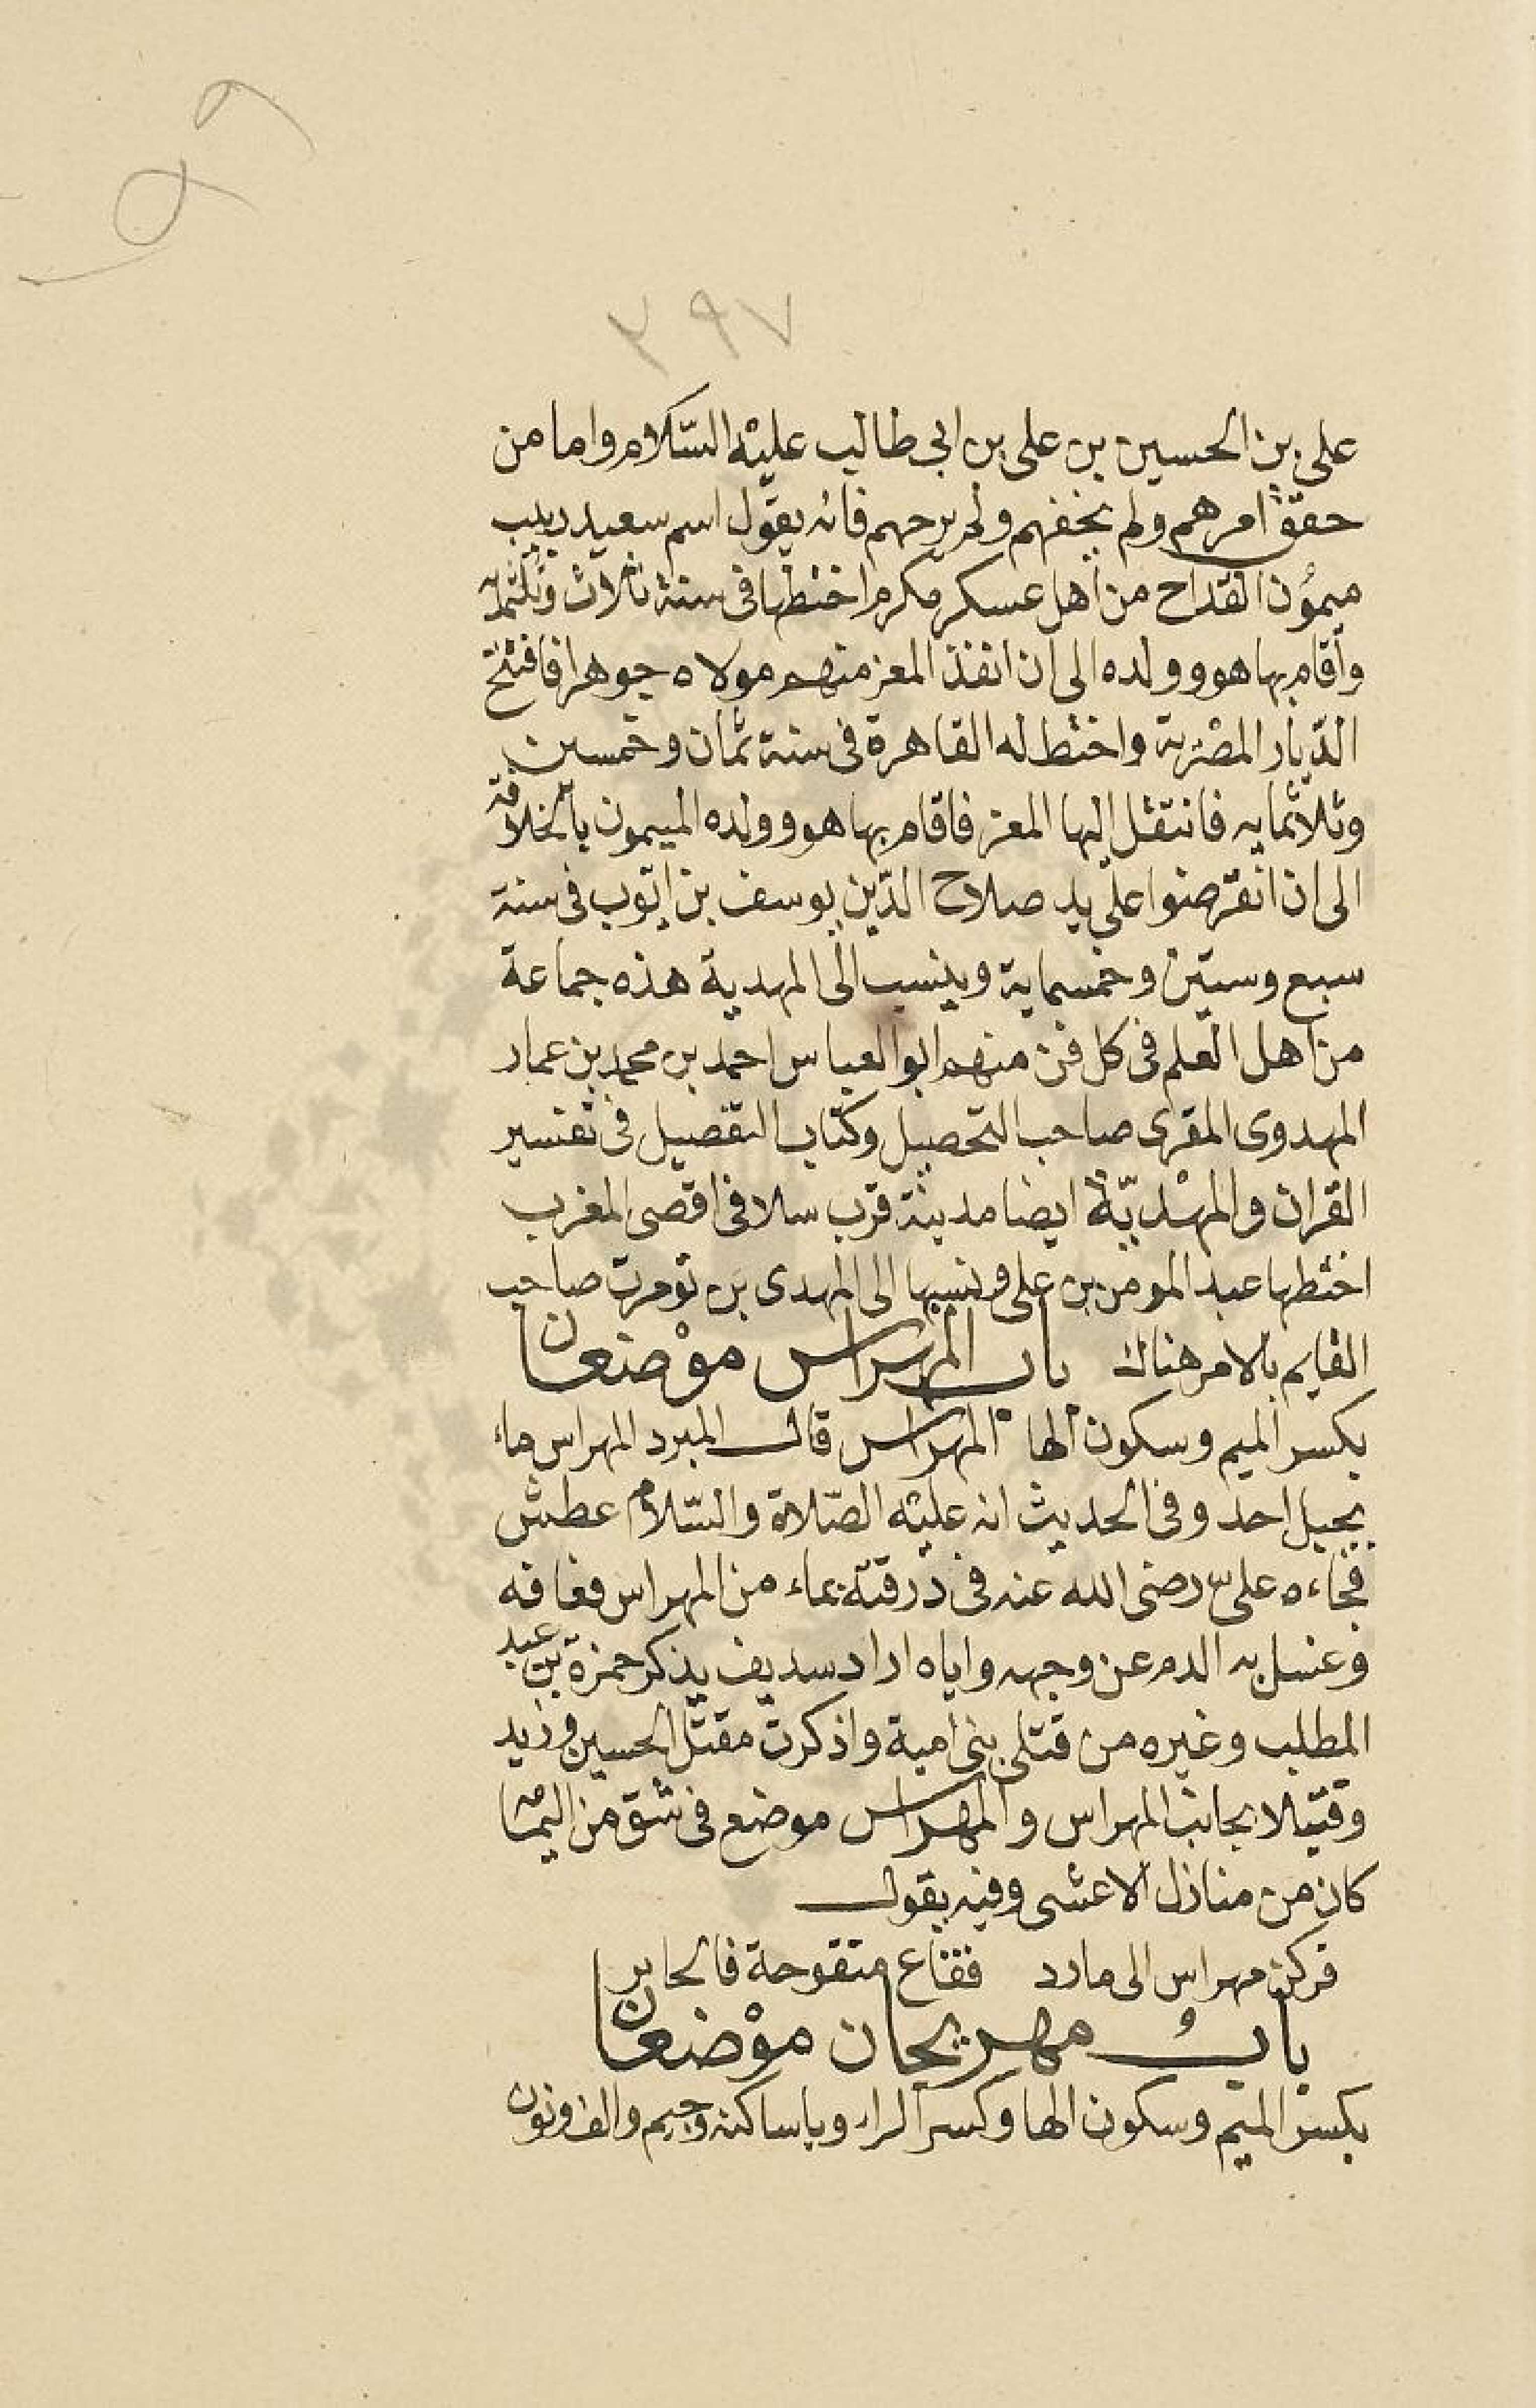 ٥٩
٣٩٧
على بن الحسين بن على بن ابى طالب عليْه السّلام واما من
حقق امرهم ولم يخفهم ولم يرحهم فانه يقول اسم سعيد ربيب
ميمون القداح من اهل عسكر مكرم اختطها فى سنة ثلاث وثلثمايه
واقام بها هو وولده الى ان انفذ المعز منهم مولاه جوهرا فافتتح
الدّيار المصْرية واختط له القاهرة فى سنة ثمان وخمسين
وثلاثمايه فانتقل اليها المعز فاقام بها هو وولده الميمون بالخلافة
الى ان انقرضوا على يد صلاح الدّين يوسف بن ايّوب فى سنة
سبع وستين وخمسماية وينسب الى المهدية هذه جماعة
من اهل العلم فى كل فن منهم ابو العباس احمد بن محمد بن عمار
المهدوى المقرى صاحب التحصيل وكتاب التفصيل فى تفسير
القران والمهْديّة ايضا مدينة قرب سلا فى اقصى المغرب
اختطها عبد المومن بن على ونسبها الى المهدى بن تومرت صاحب
القايم بالامر هناك باب المهراس موْضعان
بكسر الميم وسكون الها المهراس قال المبرد المهراس ماء
بجبل احد وفى الحديث انه عليْه الصّلاة والسّلام عطش
فجاءه علىّ رضى الله عنه فى درقته بماء من المهراس فعافه
وغسل به الدم عن وجهه واياه اراد سديف يذكر حمزة بن عبد
المطلب وغيره من قتلى بنى امية واذكرت مقتل الحسين وزيد
وقتيلا بجانب المهراس والمهراس موضع فى شق من اليمامة
كان من منازل الاعشى وفيه يقول
فركن مهراس الى مارد فقاع منفوحة فالحاير
بابُ مهريجان موْضعان
بكسر الميم وسكون الها وكسر الراء ويا ساكنه وجيم والف ونون